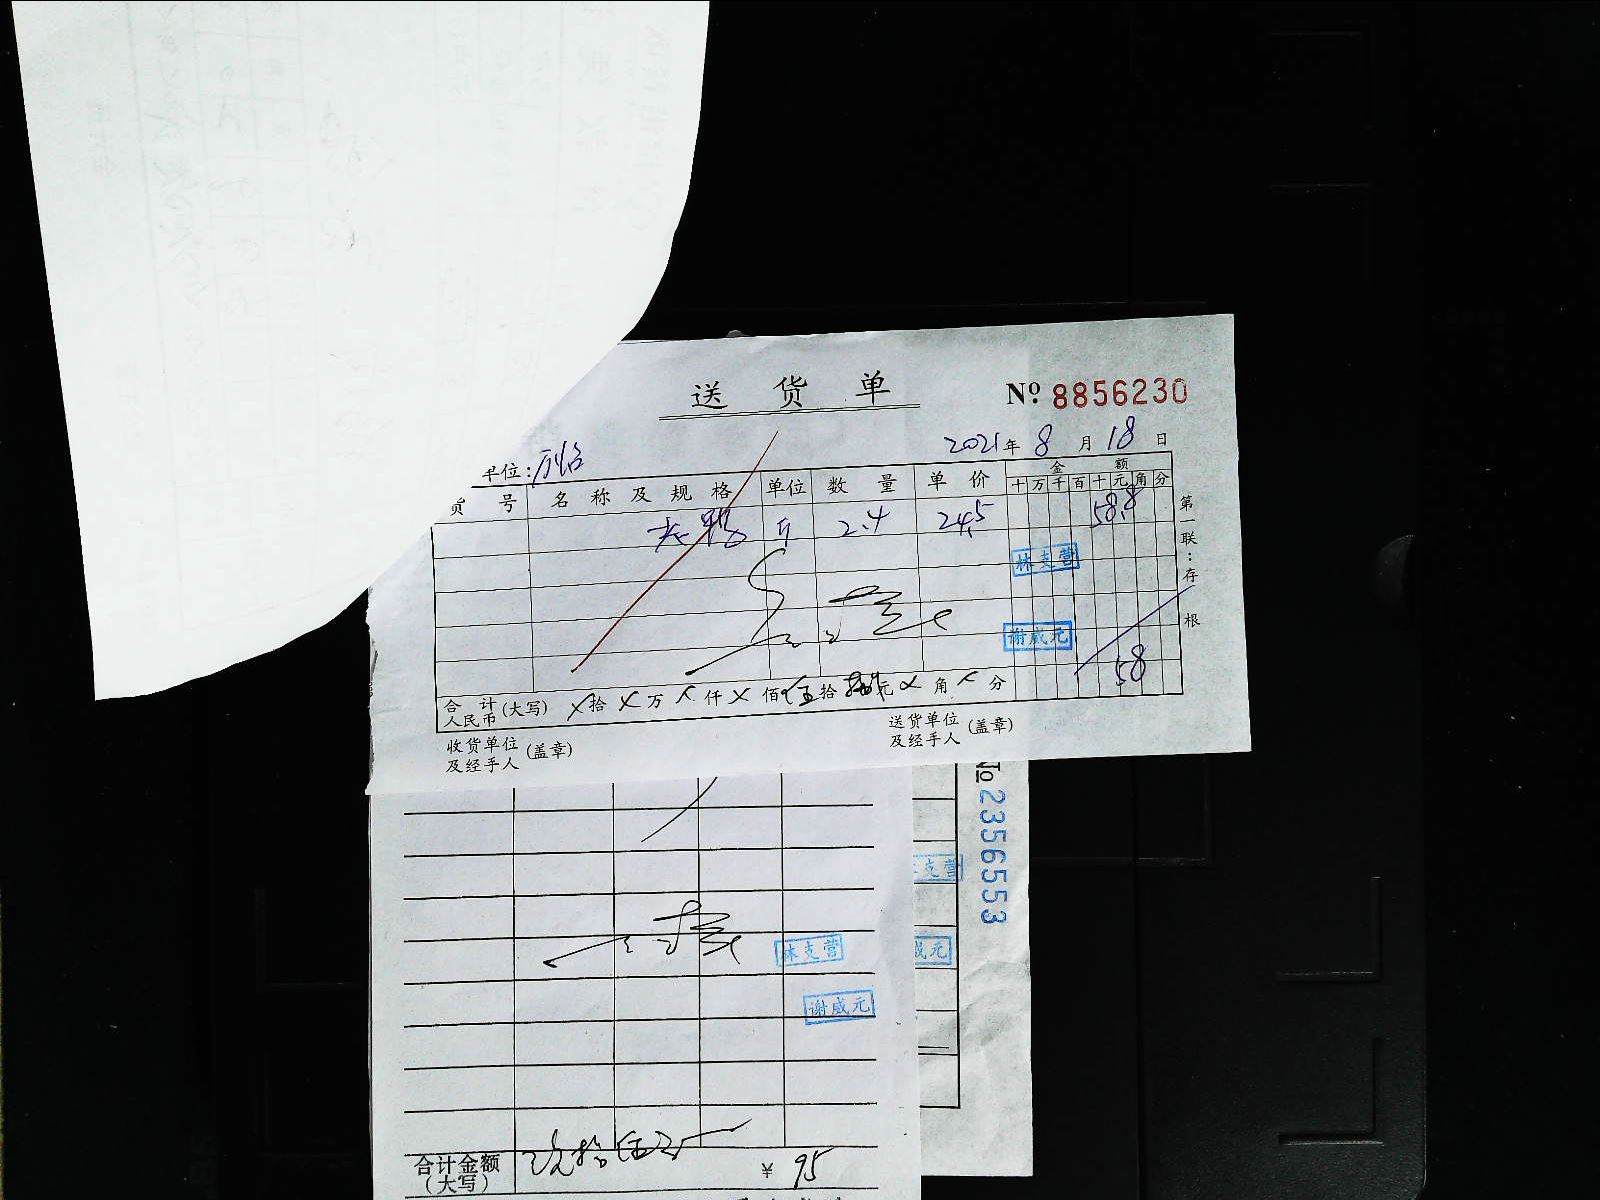 送货单
№ 8856230
单位:
2021年8月18日
货号 名称及规格 单位 数量 单价 金额
十 万 千 百 十 元 角 分
斤 2.4 24.5 58.8
林支营
谢威元
58
合计人民币(大写) 拾 万 仟 佰伍拾捌元 角 分
收货单位及经手人(盖章)
送货单位及经手人(盖章)
第一联:存根
№2356553
支营
威元
林支营
谢威元
合计金额(大写) 玖拾伍元 ¥ 95